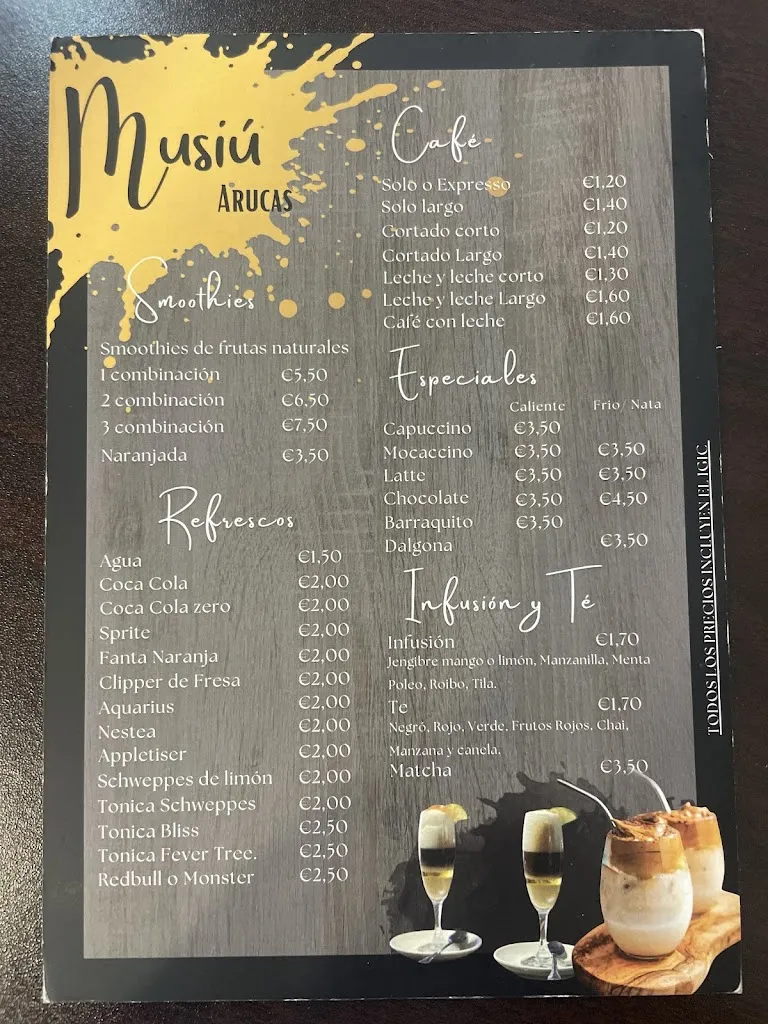 Musiú
ARUCAS
Smoothies
Smoothies de frutas naturales
1 combinación €5,50
2 combinación €6,50
3 combinación €7,50
Naranjada €3,50
Refrescos
Agua €1,50
Coca Cola €2,00
Coca Cola zero €2,00
Sprite €2,00
Fanta Naranja €2,00
Clipper de Fresa €2,00
Aquarius €2,00
Nestea €2,00
Appletiser €2,00
Schweppes de limón €2,00
Tonica Schweppes €2,00
Tonica Bliss €2,50
Tonica Fever Tree. €2,50
Redbull o Monster €2,50
Café
Solo o Expresso €1,20
Solo largo €1,40
Cortado corto €1,20
Cortado Largo €1,40
Leche y leche corto €1,30
Leche y leche Largo €1,60
Café con leche €1,60
Especiales
Caliente Frio/ Nata
Capuccino €3,50
Mocaccino €3,50 €3,50
Latte €3,50 €3,50
Chocolate €3,50 €4,50
Barraquito €3,50
Dalgona €3,50
Infusión y Té
Infusión €1,70
Jengibre mango o limón, Manzanilla, Menta
Poleo, Roibo, Tila.
Te €1,70
Negró, Rojo, Verde, Frutos Rojos, Chai,
Manzana y canela.
Matcha €3,50
TODOS LOS PRECIOS INCLUYEN EL IGIC